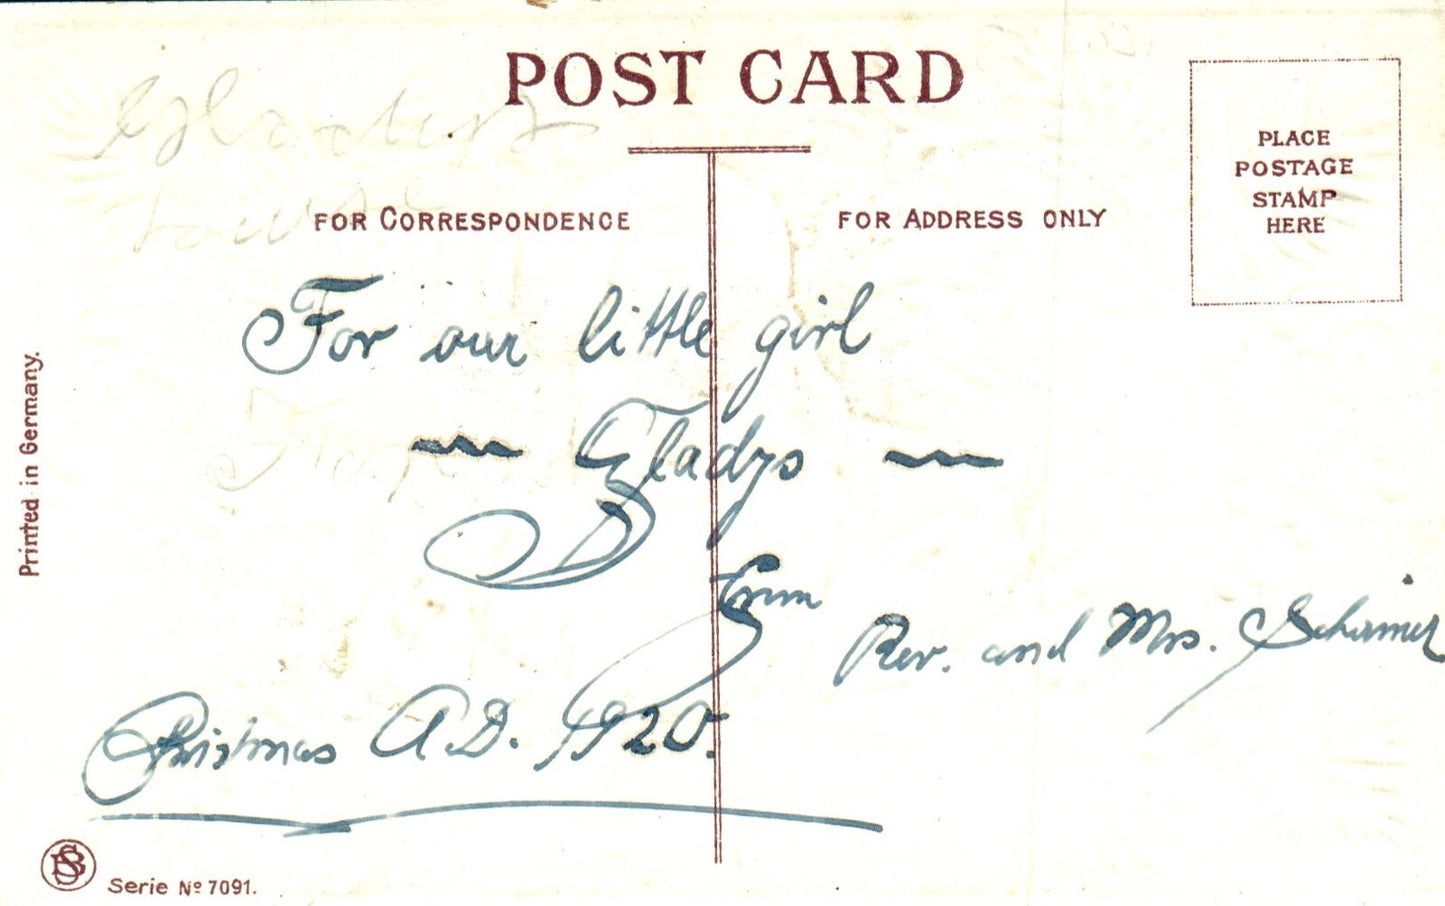 POST CARD
PLACE
POSTAGE
STAMP
HERE
Gladys
FOR CORRESPONDENCE
FOR ADDRESS ONLY
For our little girl
~ Gladys ~
From
Rev. and Mrs. Schirmer
Christmas A.D. 1920.
Printed in Germany.
Serie Nº 7091.